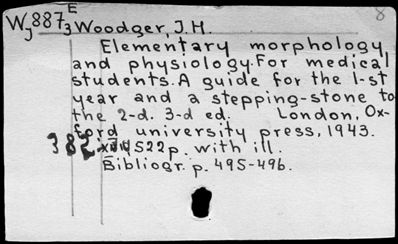 8
E
WJ 887 3 Woodger, J.H.
Elementary morphology
and physiology. For medical
students. A guide for the 1-st
year and a stepping-stone to
the 2-d. 3-d ed. London, Ox-
ford university press, 1943.
382 522 p. with ill.
Bibliogr. p. 495-496.